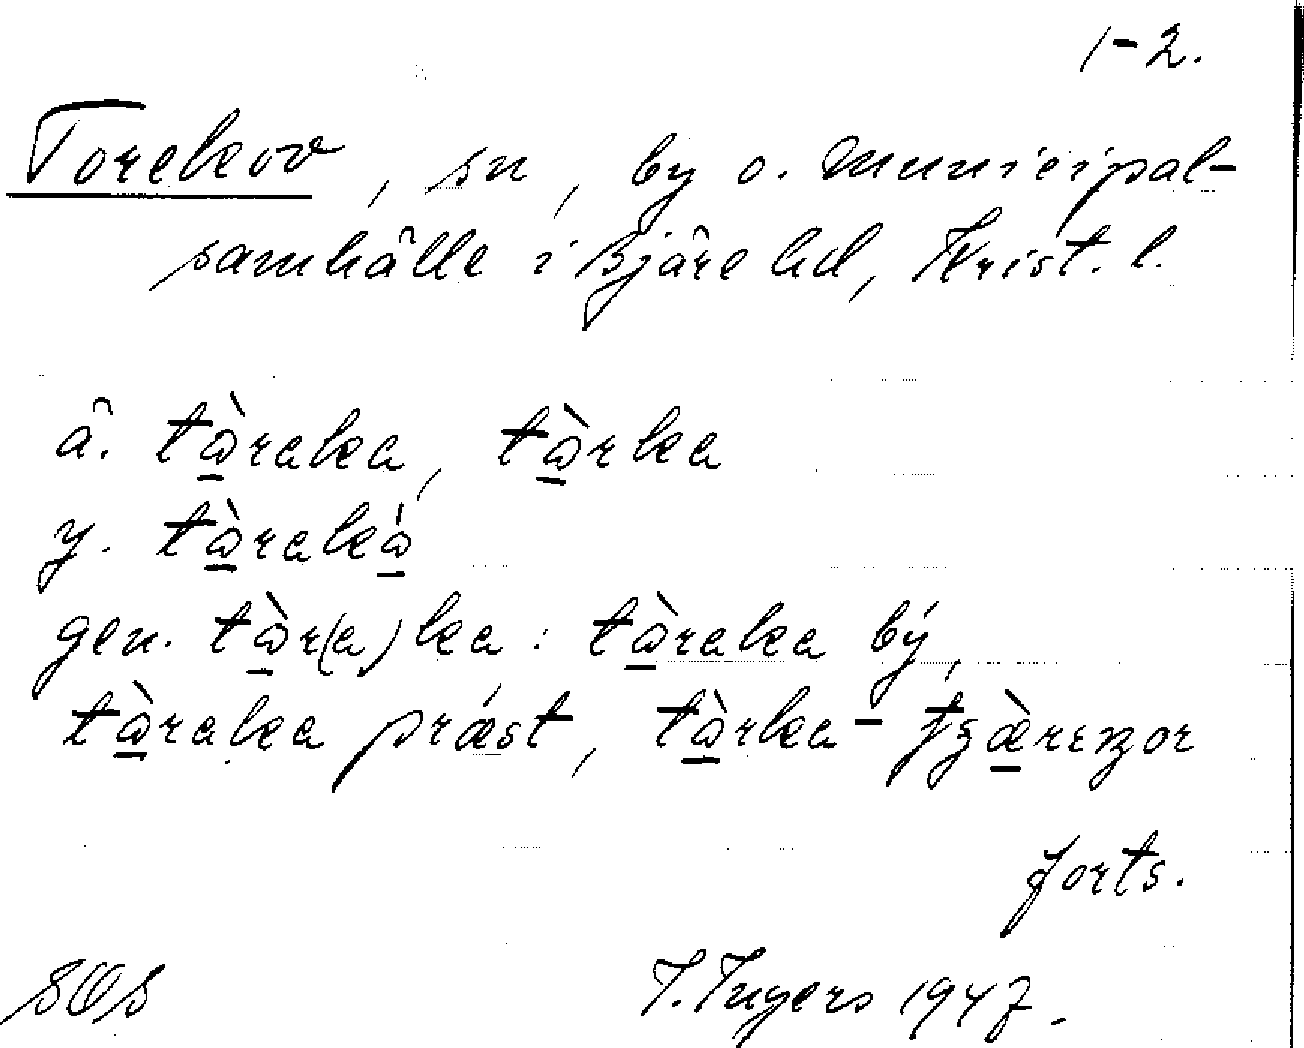 1-2.
Torekov, sn, by o. municipal-
samhälle i Bjäre hd, Krist. l.
ä. tὼ̲raka, tὼ̲rka
y. tὼ̲rakώ̲
gen. tὼ̲r(a)ka: tὼ̲raka bý,
tὼ̲raka prǽst, tὼ̲rka-
forts.
SOS
I. Ingers 1947.